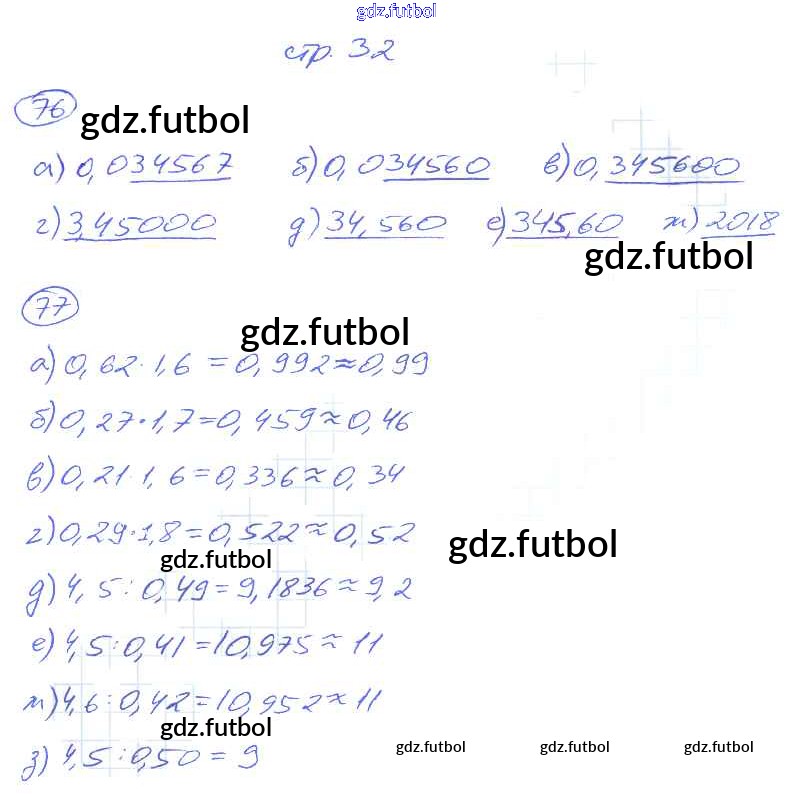 gdz.futbol
стр. 32
76
gdz.futbol
а) 0,034567 б) 0,034560 в) 0,345600
г) 3,45000 д) 34,560 е) 345,60 ж) 2018
gdz.futbol
77
gdz.futbol
а) 0,62·1,6 = 0,992≈0,99
б) 0,27·1,7=0,459≈0,46
в) 0,21·1,6=0,336≈0,34
г) 0,29·1,8=0,522≈0,52
gdz.futbol
gdz.futbol
д) 4,5:0,49=9,1836≈9,2
е) 4,5:0,41=10,975≈11
ж) 4,6:0,42=10,952≈11
gdz.futbol
з) 4,5:0,50=9
gdz.futbol gdz.futbol gdz.futbol